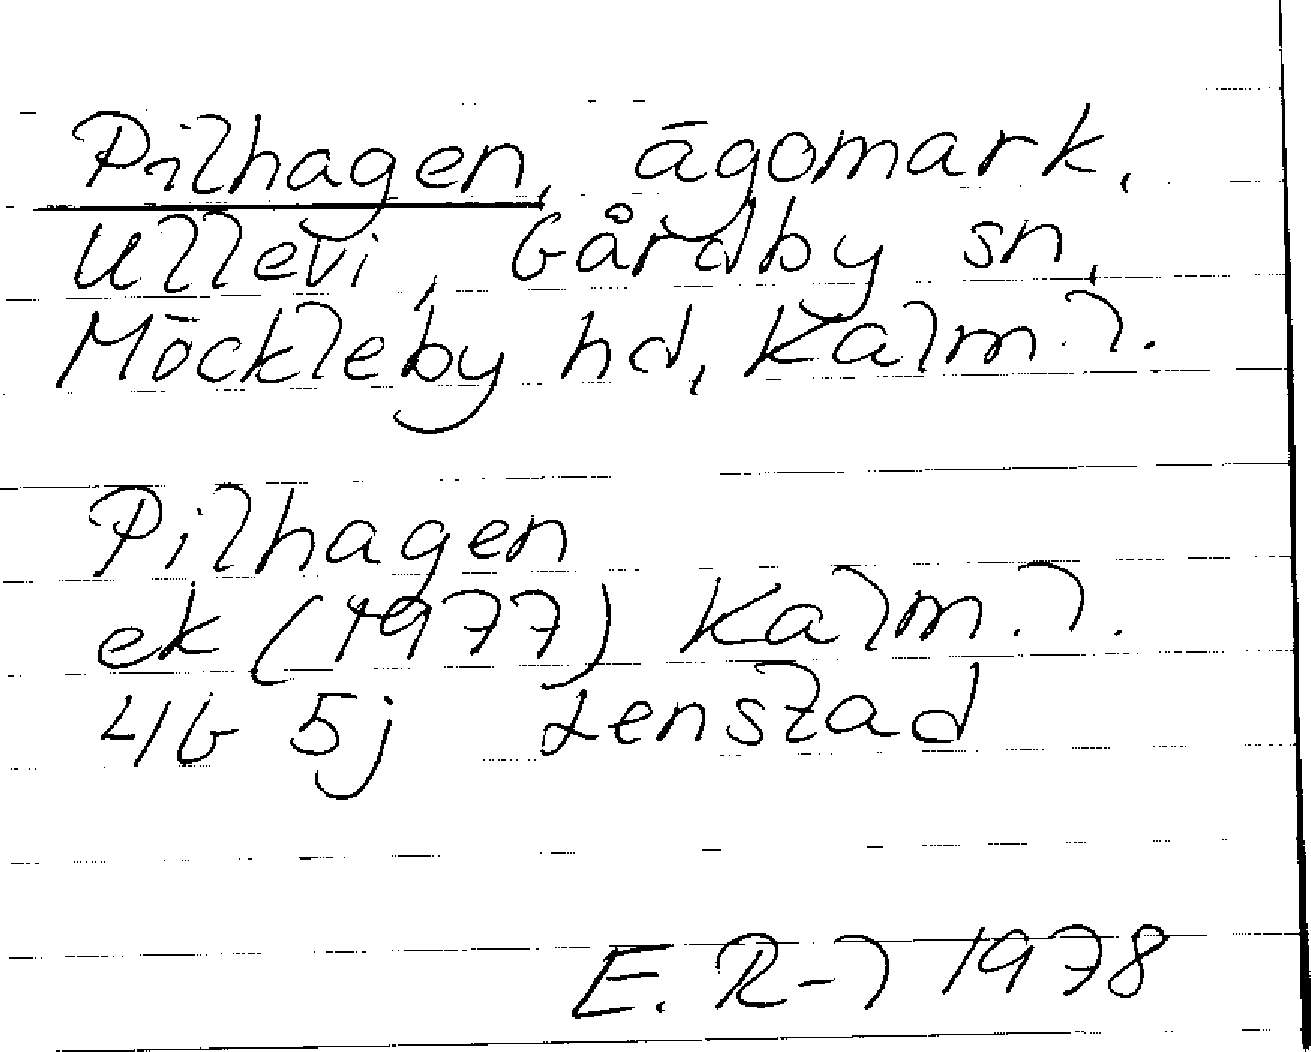 Pilhagen, ägomark,
Ullevi, Gårdby sn,
Möckleby hd, Kalm. l.
Pilhagen
ek (1977) Kalm. l.
4G 5j Lenstad
E. R-l 1978